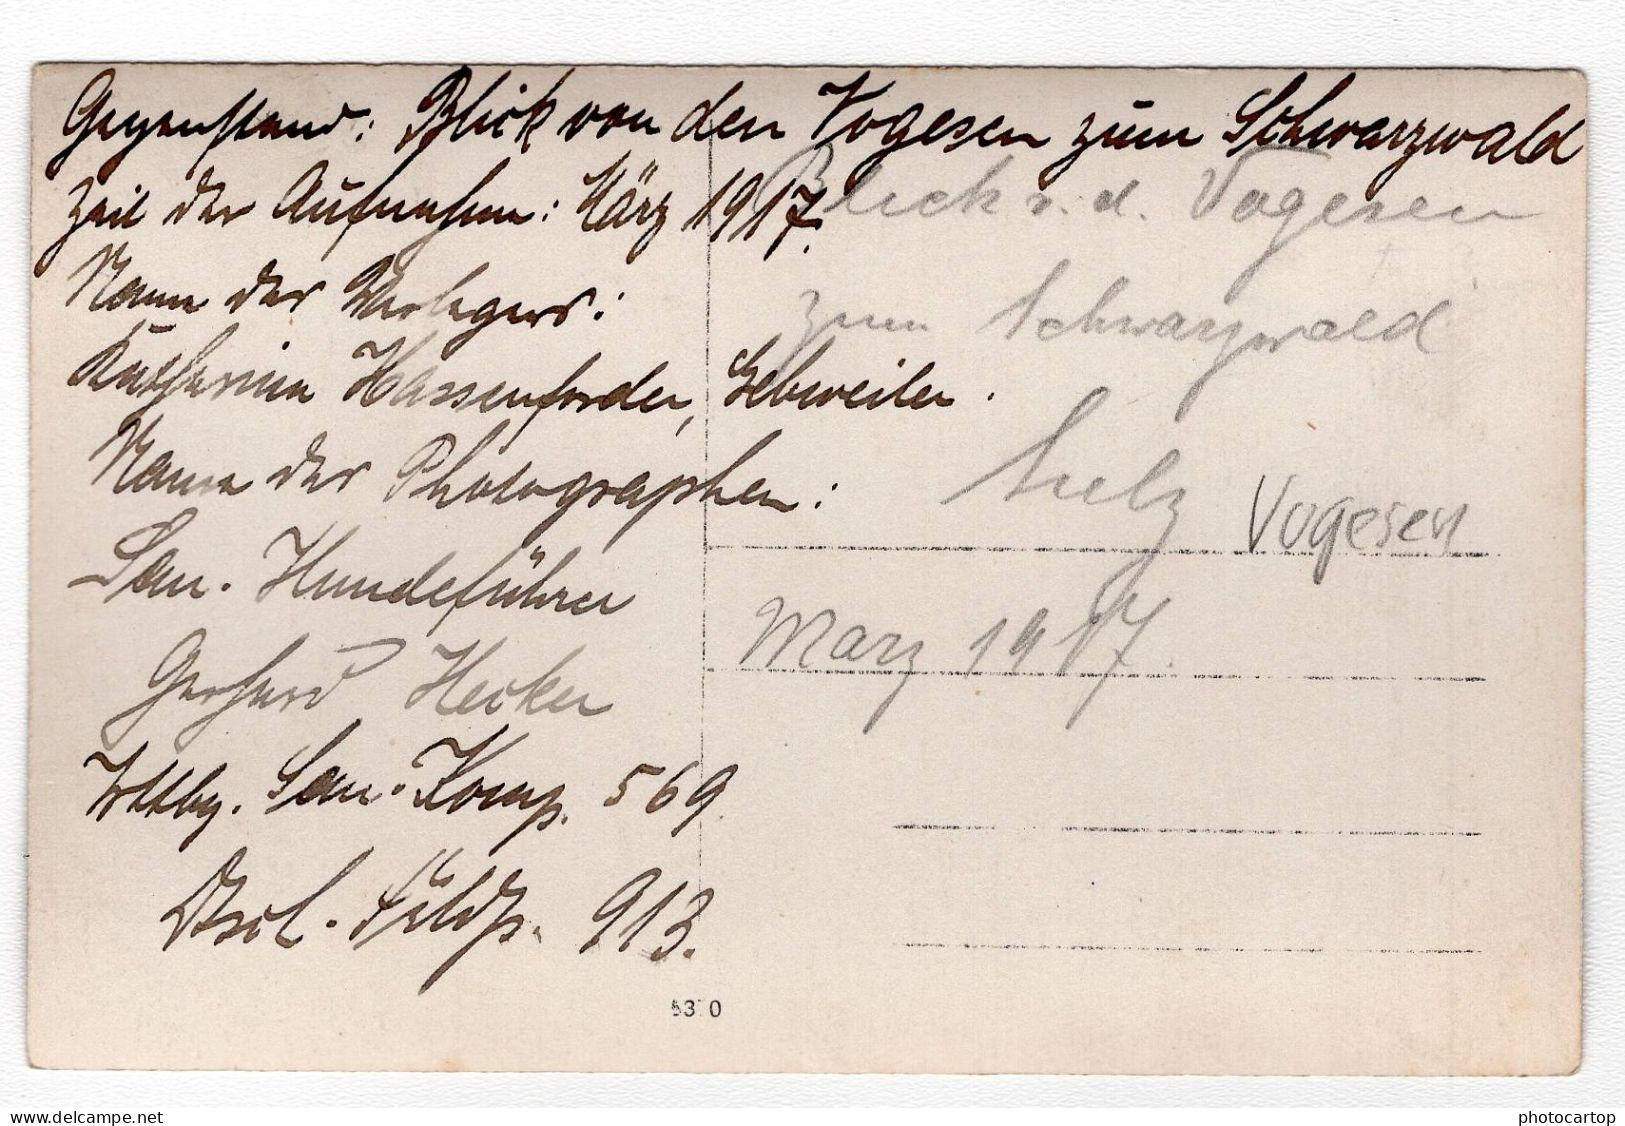 Gegenstand: Blick von den Vogesen zum Schwarzwald
Zeit der Aufnahme: März 1917.
Name des Verlegers:
Katharina Hassenforder, Gebweiler.
Name des Photographen:
San. Hundeführer
Gerhard Hecker
Wttbg. San. Komp. 569.
Dtsch. Feldp. 913.
Blick v. d. Vogesen
zum Schwarzwald
Sulz Vogesen
März 1917.
photocartop
www.delcampe.net